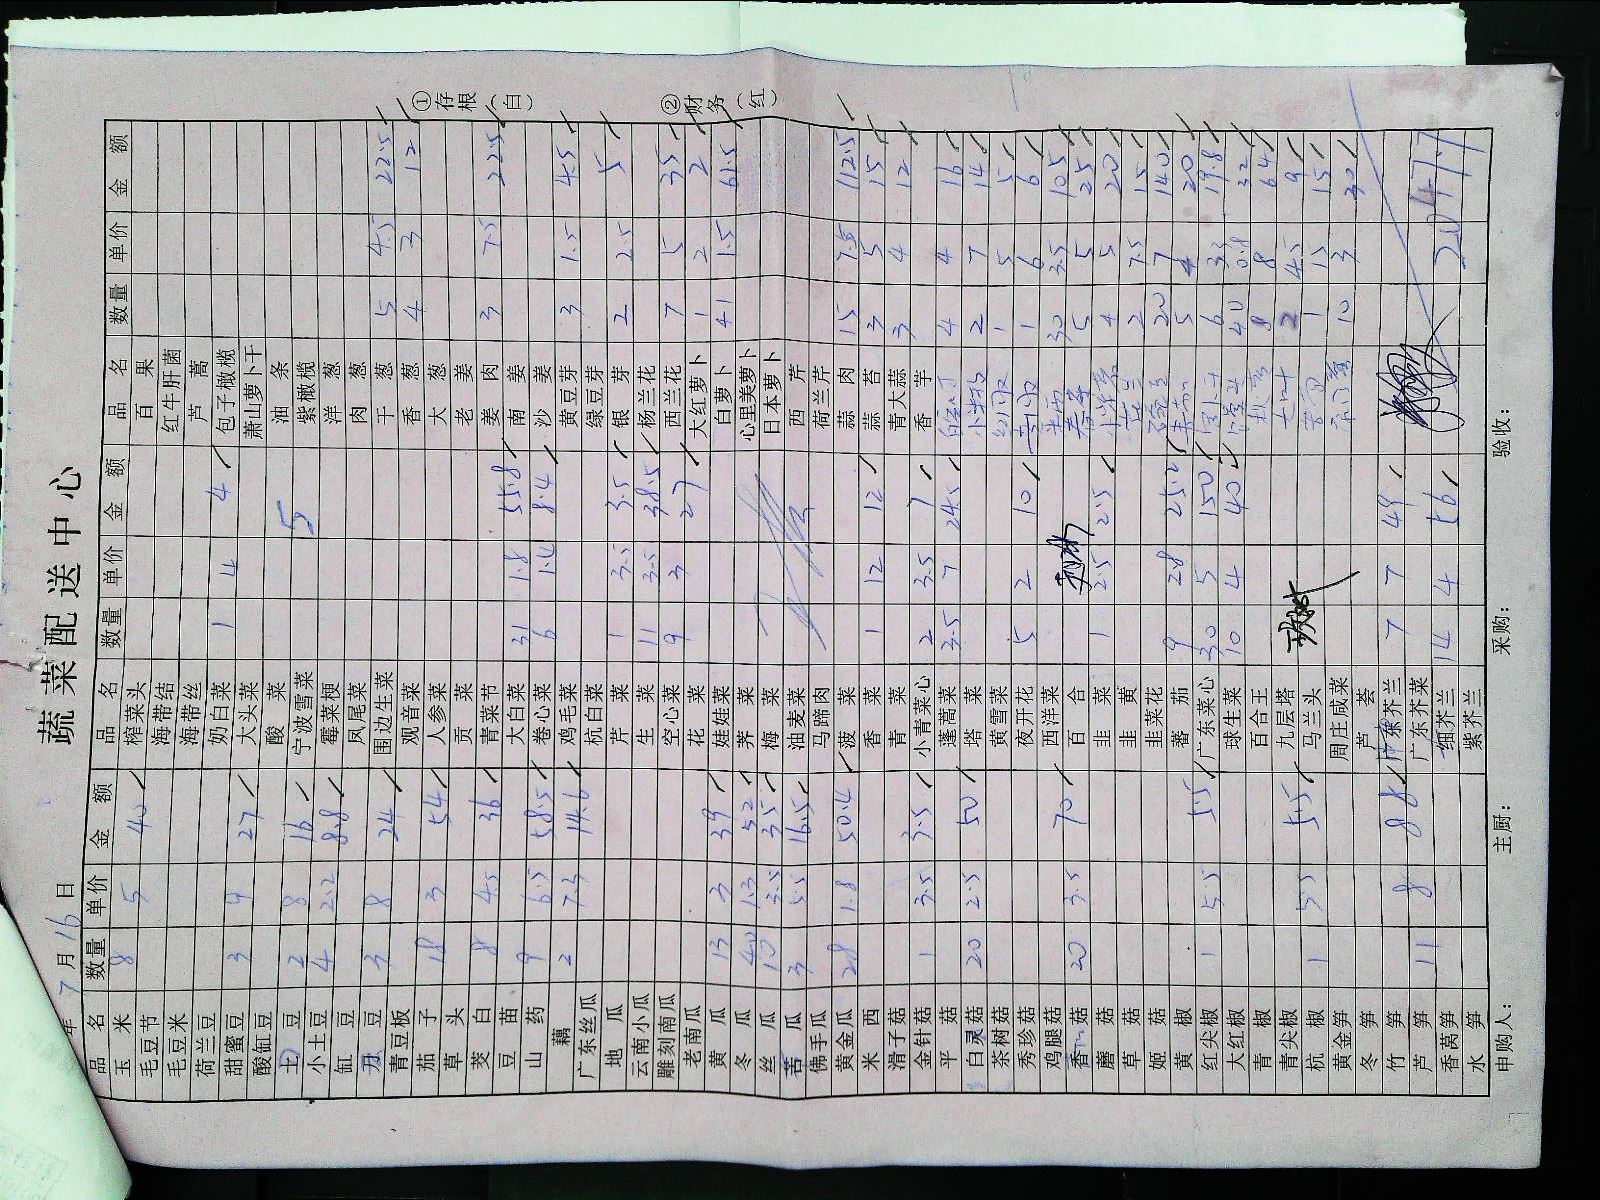 蔬菜配送中心
年 7月16日
品名 数量 单价 金额 品名 数量 单价 金额 品名 数量 单价 金额
玉米 8 5 40 榨菜头 百果
毛豆节 海带结 红牛肝菌
毛豆米 海带丝 芦蒿
荷兰豆 奶白菜 1 4 4 包子橄榄
甜蜜豆 3 9 27 大头菜 萧山萝卜干
酸缸豆 酸菜 油条
土豆 2 8 16 宁波雪菜 5 紫橄榄
小土豆 4 2.2 8.8 霉菜梗 洋葱
缸豆 凤尾菜 肉葱
刀豆 3 8 24 围边生菜 干葱 5 4.5 22.5
青豆板 观音菜 香葱 4 3 12
茄子 18 3 54 人参菜 大葱
草头 贡菜 老姜
茭白 8 4.5 36 青菜节 姜肉 3 7.5 22.5
豆苗 大白菜 31 1.8 55.8 南姜
山药 9 6.5 58.5 卷心菜 6 1.4 8.4 沙姜
藕 2 7.3 14.6 鸡毛菜 黄豆芽 3 1.5 4.5
广东丝瓜 杭白菜 绿豆芽
地瓜 芹菜 1 3.5 3.5 银芽 2 2.5 5
云南小瓜 生菜 11 3.5 38.5 杨兰花
雕刻南瓜 空心菜 9 3 27 西兰花 7 5 35
老南瓜 花菜 大红萝卜 1 2 2
黄瓜 13 3 39 娃娃菜 白萝卜 41 1.5 61.5
冬瓜 40 1.3 52 荠菜 心里美萝卜
丝瓜 10 3.5 35 梅菜 日本萝卜
苦瓜 3 5.5 16.5 油麦菜 西芹
佛手瓜 马蹄肉 荷兰芹
黄金瓜 28 1.8 50.4 菠菜 蒜肉 15 7.5 112.5
米西 香菜 1 12 12 蒜苔 3 5 15
滑子菇 青菜 青大蒜 3 4 12
金针菇 1 3.5 3.5 小青菜心 2 3.5 7 香芋
平菇 蓬蒿菜 3.5 7 24.5 4 4 16
白灵菇 20 2.5 50 塔菜 2 7 14
茶树菇 黄雪菜 1 5 5
秀珍菇 夜开花 5 2 10 1 6 6
鸡腿菇 西洋菜 30 3.5 105
香菇 20 3.5 70 百合 5 5 25
蘑菇 韭菜 1 2.5 2.5 4 5 20
草菇 韭黄 2 7.5 15
姬菇 韭菜花 20 7 140
黄椒 番茄 9 2.8 25.2 5 4 20
红尖椒 1 5.5 5.5 广东菜心 30 5 150 6 3.3 19.8
大红椒 球生菜 10 4 40 40 0.8 32
青椒 百合王 8 8 64
青尖椒 九层塔 2 4.5 9
杭椒 1 5.5 5.5 马兰头 1 15 15
黄金笋 周庄咸菜 10 3 30
冬笋 芦荟
竹笋 广东芥兰 7 7 49
芦笋 11 8 88 广东芥菜
香莴笋 细芥兰 14 4 56 2047.7
水笋 紫芥兰
申购人: 主厨: 采购: 验收:
①存根(白)
②财务(红)